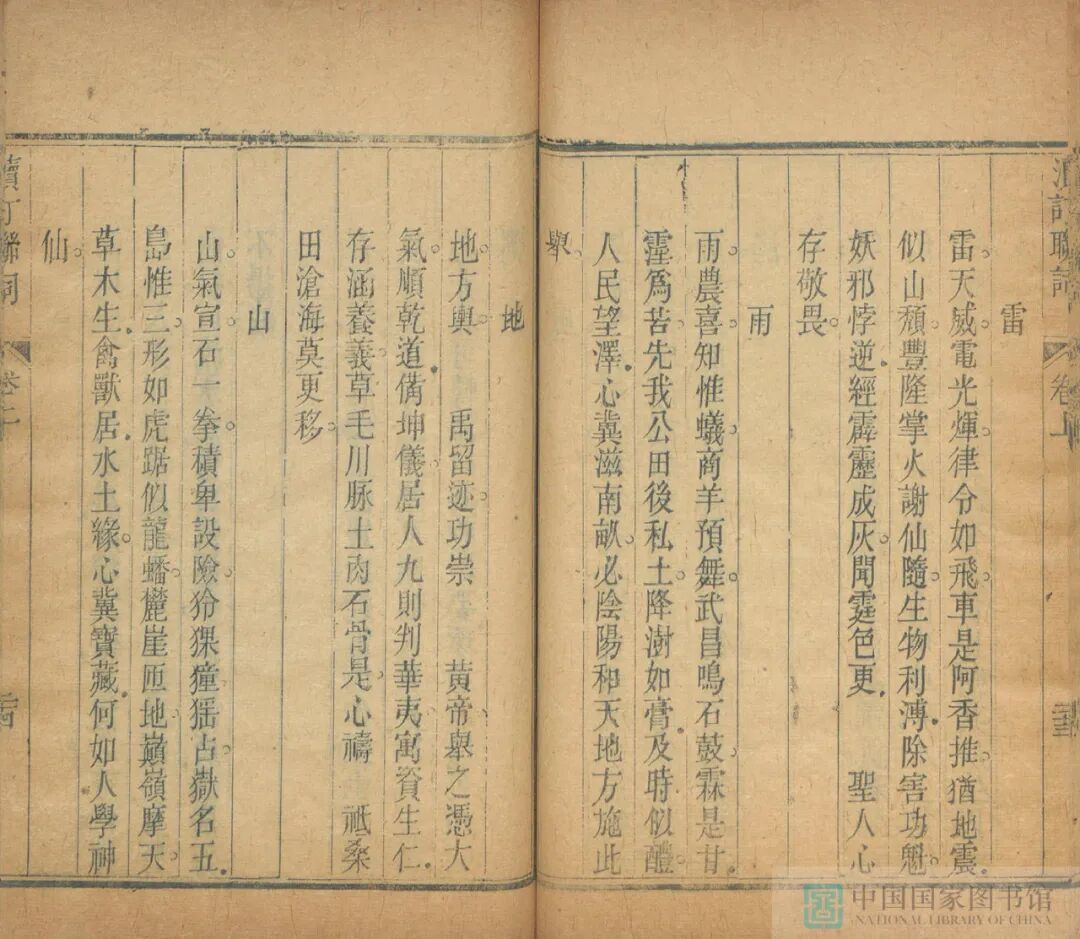 酒詞聯詩
卷上
雷
雷天威電光煇律令如飛車是阿香推猶地震
似山頽豐隆掌火謝仙隨生物利溥除害功魁
妖邪悖逆經霹靂成灰聞霆色更 聖人心
存敬畏
雨
雨農喜知惟蟻商羊預舞武昌鳴石鼓霖是甘
霪爲苦先我公田後私土降澍如膏及時似醴
人民望澤心冀滋南畝必陰陽和天地方施此
舉
地
地方輿 禹留迹功崇 黃帝舉之憑大
氣順乾道備坤儀居人九則判華夷寓資生仁
存涵養義草毛川脉土肉石骨是心禱 祗桑
田滄海莫更移
山
山氣宣石一拳積卑設險狑猓獞猺占嶽名五
島惟三形如虎踞似龍蟠麓崖匝地巔嶺摩天
草木生禽獸居水土緣心冀寶藏何如人學神
仙
續訂聯詞
中国国家图书馆
NATIONAL LIBRARY OF CHINA